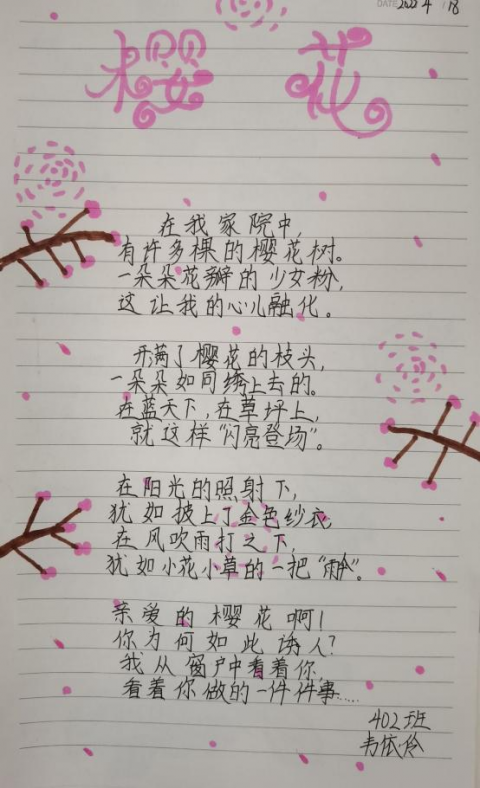 DATE 2022 4 / 18
樱花
在我家院中，
有许多棵的樱花树。
一朵朵花瓣的少女粉，
这让我的心儿融化。
开满了樱花的枝头，
一朵朵如同绣上去的。
在蓝天下，在草坪上，
就这样“闪亮登场”。
在阳光的照射下，
犹如披上了金色纱衣，
在风吹雨打之下，
犹如小花小草的一把“雨伞”。
亲爱的樱花啊！
你为何如此诱人？
我从窗户中看着你，
看着你做的一件件事……
402班
韦依伶